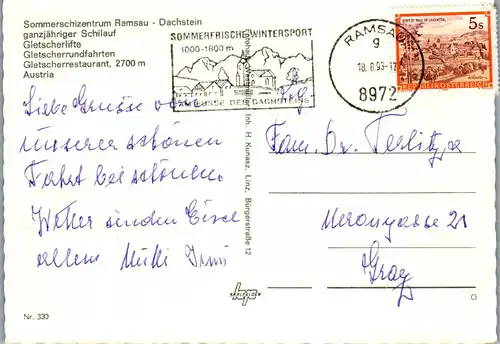 Sommerschizentrum Ramsau - Dachstein
ganzjähriger Schilauf
Gletscherlifte
Gletscherrundfahrten
Gletscherrestaurant, 2700 m
Austria
SOMMERFRISCHE/WINTERSPORT
1000-1800 m
AM FUSSE DES DACHSTEINS
RAMSAU
g
18.8.93-17
8972
5s
REPUBLIK ÖSTERREICH
Inh. H. Kunasz, Linz, Bürgerstraße 12
Liebe Grüsse von
unserer schönen
Fahrt bei schönem
Wetter senden Euch
allen Mutti Irmi
Fam. Dr. Terlitza
Merangasse 21
Graz
SAALFELDEN
Nr. 330